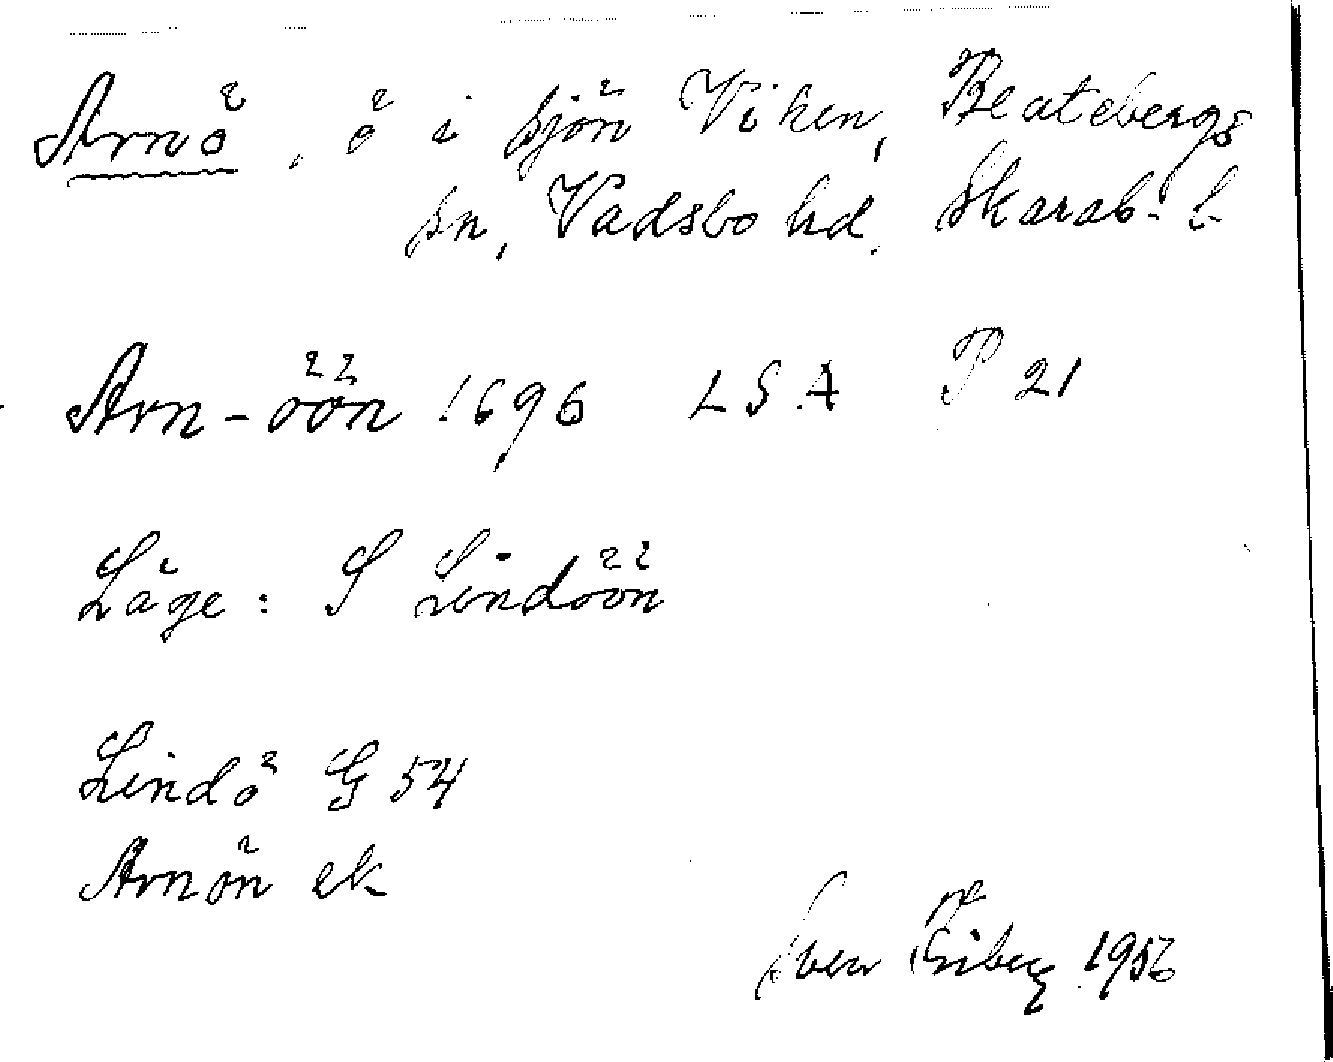 Arnö, ö i sjön Viken, Beatebergs
sn, Vadsbo hd. Skarab. l.
Arn-öön 1696 LSA P 21
Läge: S Lindöön
Lindö G 54
Arnön ek
Sven Friberg 1956